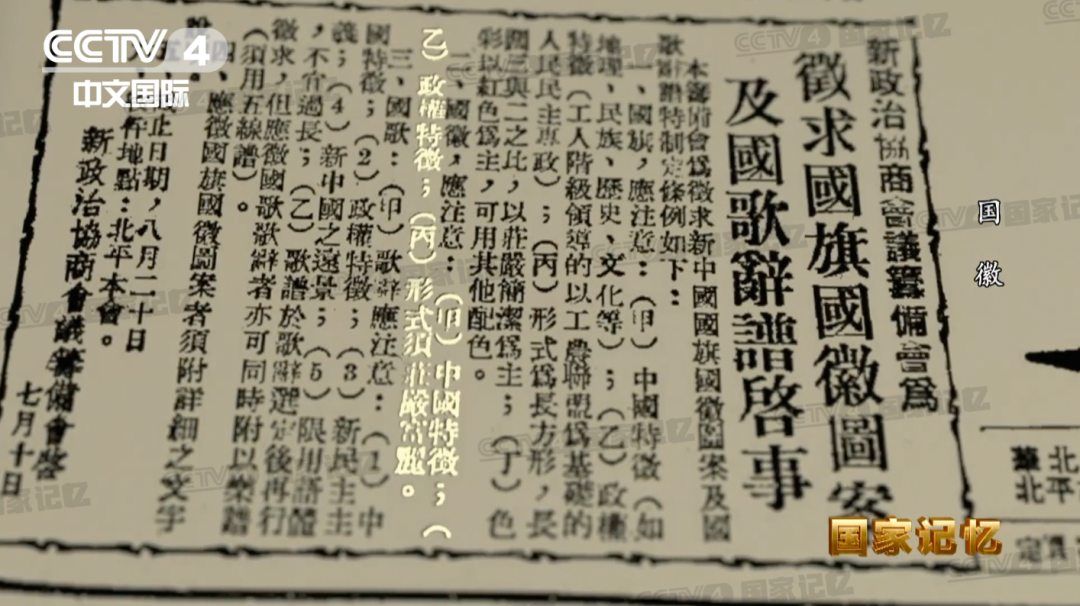 CCTV 4
中文国际
新政治協商會議籌備會為
徵求國旗國徽圖案
及國歌辭譜啓事
本籌備會為徵求新中國國旗國徽圖案及國
歌辭譜特制定條例如下：
一、國旗，應注意：（甲）中國特徵（如
地理、民族、歷史、文化等）；（乙）政權
特徵（工人階級領導的以工農聯盟為基礎的
人民民主專政）；（丙）形式為長方形，長
闊三與二之比，以莊嚴簡潔為主；（丁）色
彩以紅色為主，可用其他配色。
國徽，應注意：（甲）中國特徵；（
乙）政權特徵；（丙）形式須莊嚴富麗。
三、國歌：（甲）歌辭應注意：（1）中
國特徵；（2）政權特徵；（3）新民主主
義；（4）新中國之遠景；（5）限用語體
，不宜過長；（乙）歌譜於歌辭選定後再行
徵求，但應徵國歌歌辭者亦可同時附以樂譜
（須用五線譜）。
四、應徵國旗國徽圖案者須附詳細之文字
止日期，八月二十日
地點：北平本會。
新政治協商會議籌備會啓
七月十日
国徽
北
華北
北平
定
国家记忆
CCTV 4 国家记忆